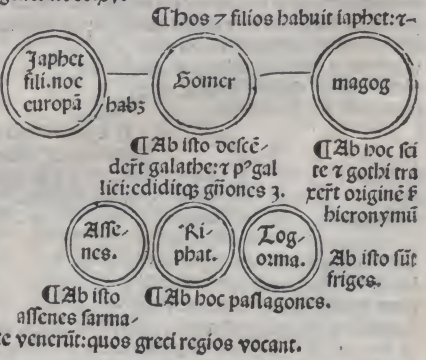 ¶Hos 7 filios habuit iaphet:⁊-
Japhet
fili.noe
europā
habꝫ
Gomer
magog
¶Ab isto descē-
dert̄ galathe:⁊ pꝰ gal
lici:ediditqꝫ gn̄ones 3.
¶Ab hoc sci
te ⁊ gothi tra
xert̄ originē ẜ
hieronymū
Asse-
nes.
Ri-
phat.
Tog-
orma.
Ab isto sūt
friges.
¶Ab isto
assenes sarma-
¶Ab hoc paflagones.
te venerūt:quos greci regios vocant.